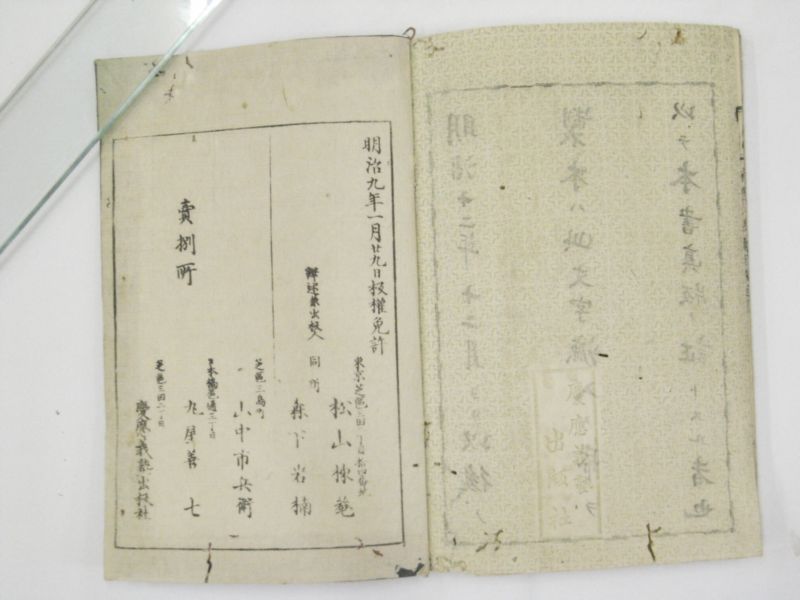 明治十二年十二月ヨリ以後ノ
製本ハ此文字漉入
以テ本書真版ノ証トスル者也
慶應義塾
出版社
明治九年一月廿九日板權免許
東京芝區三田二丁目
松山棟菴
譯述兼出板人
同所
森下岩楠
賣捌所
芝區三島町
山中市兵衛
日本橋區通三丁目
丸屋善七
芝區三田二丁目
慶應義塾出版社